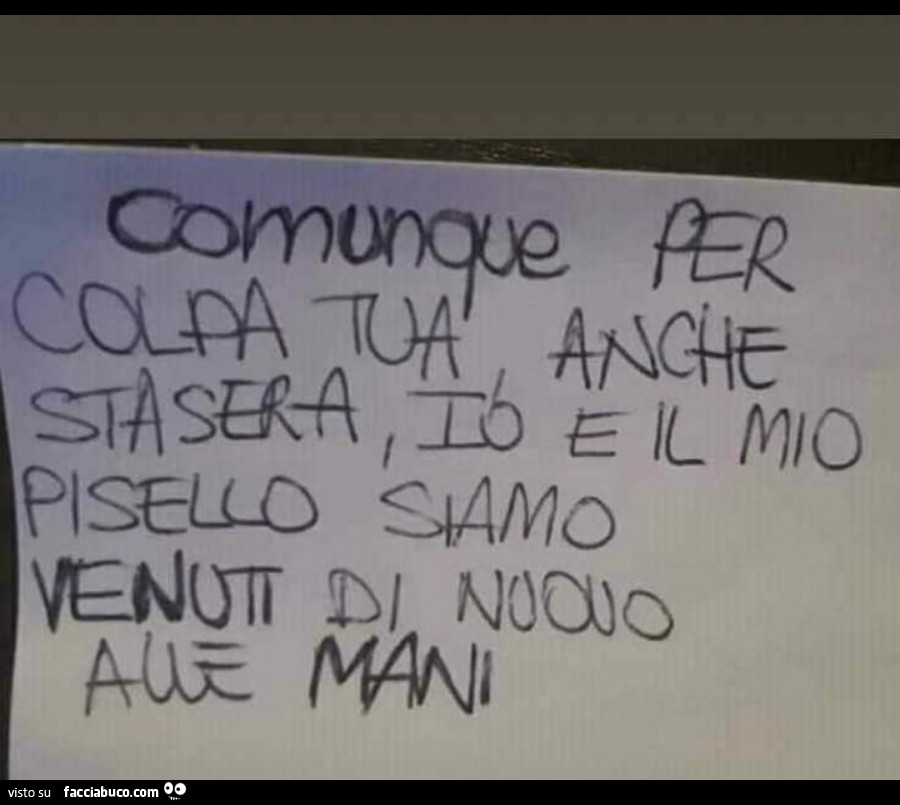 Comunque PER
COLPA TUA, ANCHE
STASERA, IO E IL MIO
PISELLO SIAMO
VENUTI DI NUOVO
ALLE MANI
visto su facciabuco.com